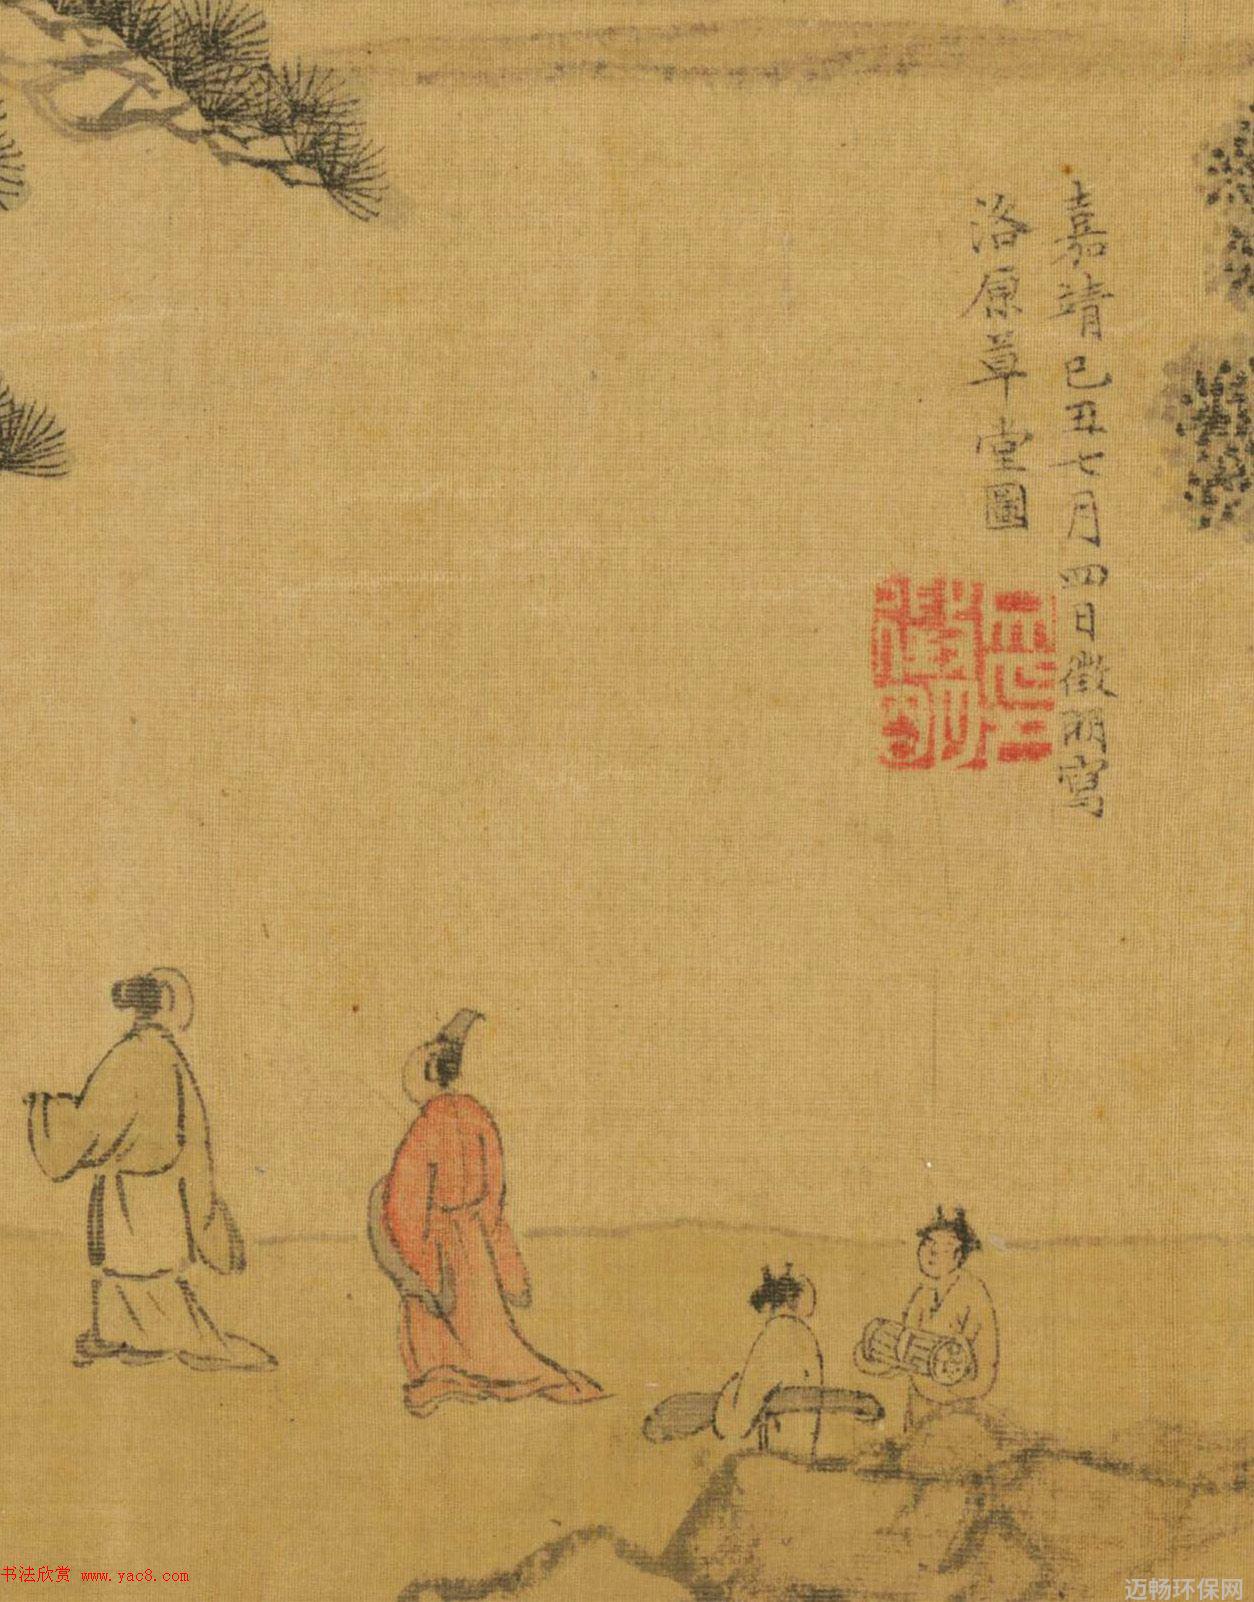 嘉靖己丑七月四日徵明寫
洛原草堂圖
书法欣赏 www.yac8.com
迈畅环保网